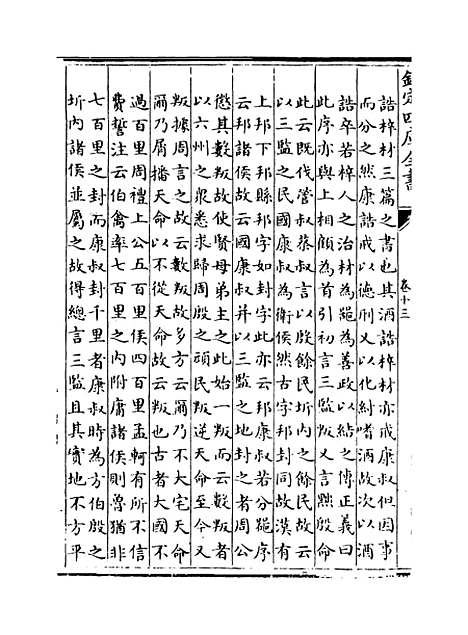 欽定四庫全書
卷十三
誥梓材三篇之書也其酒誥梓材亦戒康叔但因事
而分之然康誥戒以德刑又以化紂嗜酒故次以酒
誥卒若梓人之治材為器為善政以結之傳正義曰
此序亦與上相顧為首引初言三監叛又言黜殷命
此云既伐管叔蔡叔言以殷餘民圻内之餘民故云
以三監之民國康叔為衛侯然古字邦封同故漢有
上邦下邦縣邦字如封字此亦云邦康叔若分器序
云邦諸侯故云國康叔并以三監之地封之者周公
懲其數叛故使賢母弟主之此始一叛而云數叛者
以六州之衆悉來歸周殷之頑民叛逆天命至今又
叛據周言之故云數叛故多方云爾乃不大宅天命
爾乃屑播天命以不從天命故云叛也古者大國不
過百里周禮上公五百里侯四百里孟軻有所不信
費誓注云伯禽率七百里之内附庸諸侯則魯猶非
七百里之封而康叔封千里者康叔時為方伯殷之
圻内諸侯並屬之故得總言三監且其實地不方平